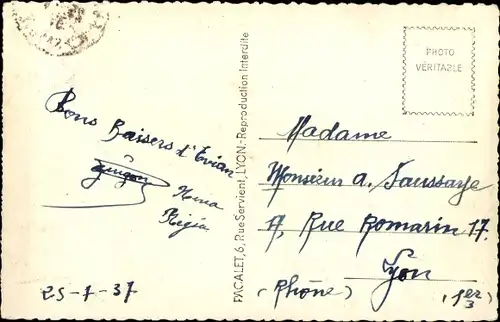 PHOTO
VÉRITABLE
Bons Baisers d'Evian
25-7-37
PACALET, 6, Rue Servient, LYON.-Reproduction Interdite
Madame
Monsieur A. Saussaye
17, Rue Romarin 17.
Lyon
(Rhône) (1er)